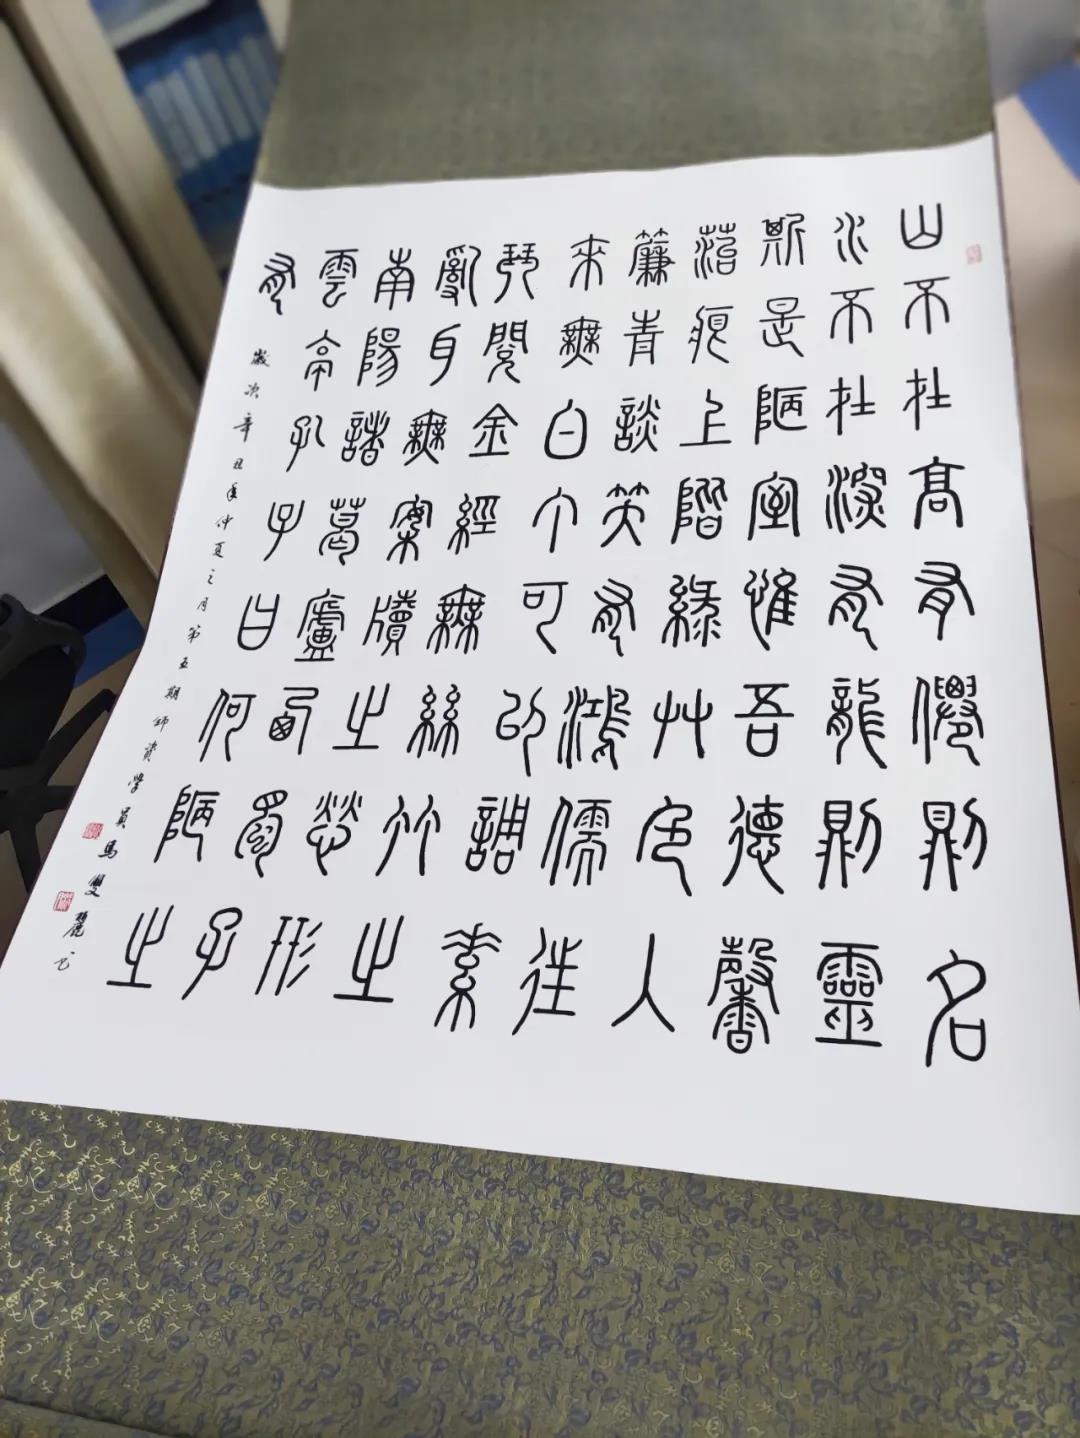 山不在高有僊則名
水不在深有龍則靈
斯是陋室惟吾德馨
菭痕上階綠艸色入
簾青談笑有鴻儒往
來無白丁可以調素
琴閱金經無絲竹之
亂耳無案牘之勞形
南陽諸葛廬西蜀子
雲亭孔子曰何陋之
有
歲次辛丑年仲夏之月第五期師資學員馬雙麗書